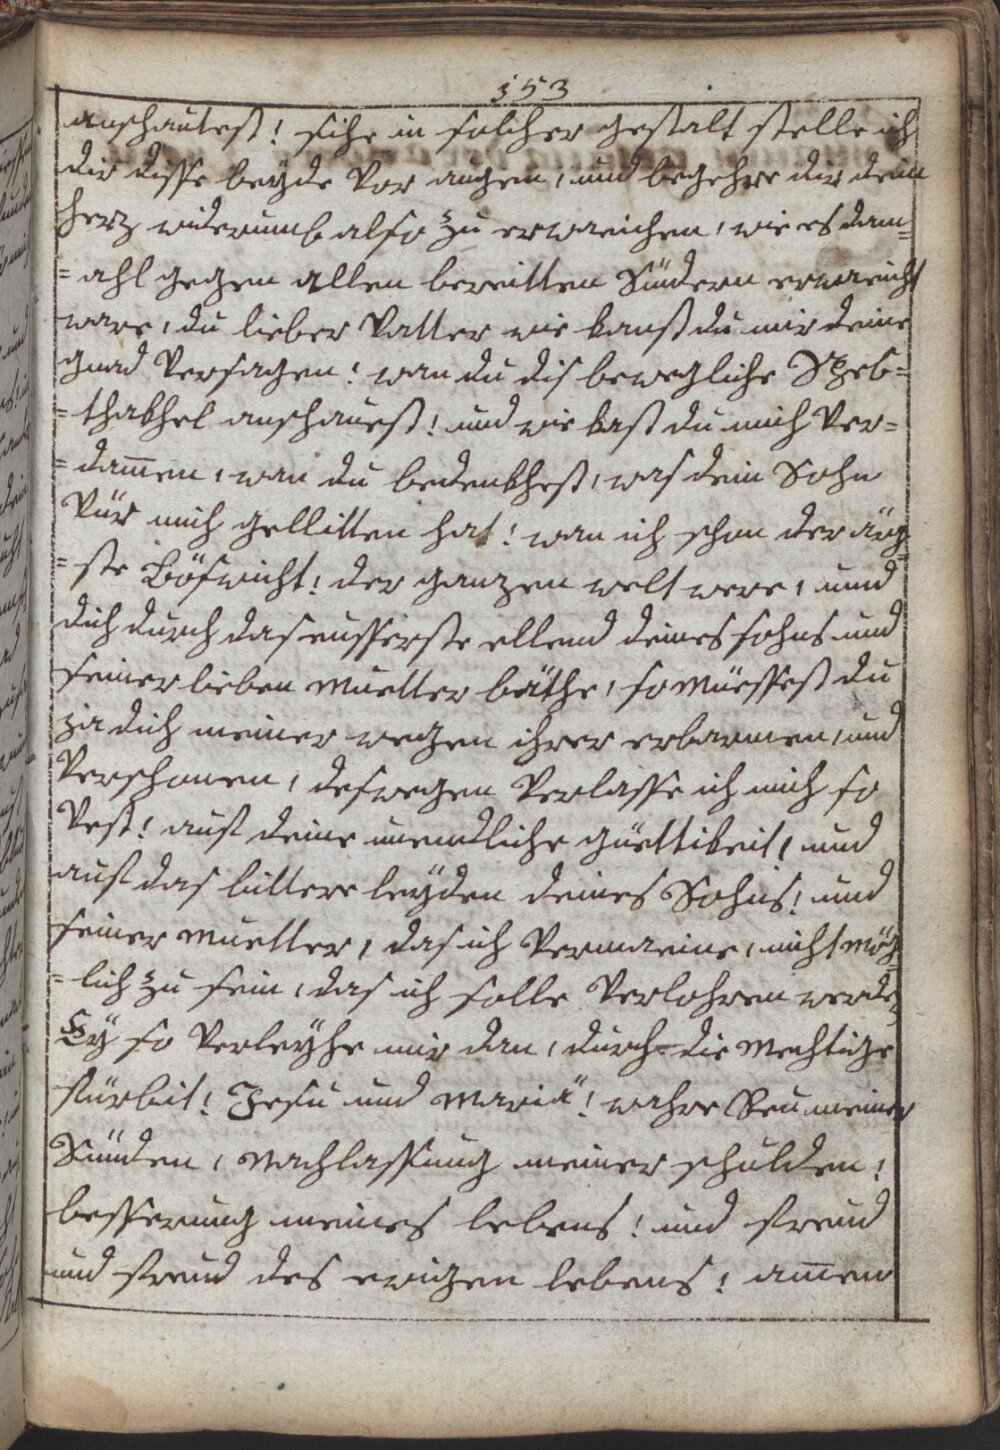 353
anschautest! sihe in solcher gestalt stelle ich
dir disse beyde vor augen, und begehre dir dein
herz widerumb also zu erweichen, wie es dam=
=ahl gegen allen bereitten Sündern erweicht
ware, du lieber Vatter wie kanst du mir deine
gnad versagen! wan du dis bewegliche Speb=
=thakhel anschauest! und wie kast du mich ver=
=dam̄en, wan du bedenkhest, was dein Sohn
vür mich gellitten hat! wan ich schon der ärg=
=ste Böswicht! der ganzen welt were, und
dich durch das eusserste ellend deines sohns und
seiner lieben Muetter bäthe, so Müessest du
ja dich meiner wegen ihrer erbarmen, und
verschonen, deswegen verlasse ich mich so
vest! auf deine unendliche güettikeit, und
auf das bittere leyden deines Sohns! und
seiner Muetter, das ich vermeine, nicht Mög=
=lich zu sein, das ich solle verlohren werden
Ey so verleyhe mir dan, durch die Mechtige
fürbit! Jesu und Mariä! wahre Reu meiner
Sünden, Nachlassung meiner schulden!
besserung meines lebens! und freud
und freud des ewigen lebens! am̄en